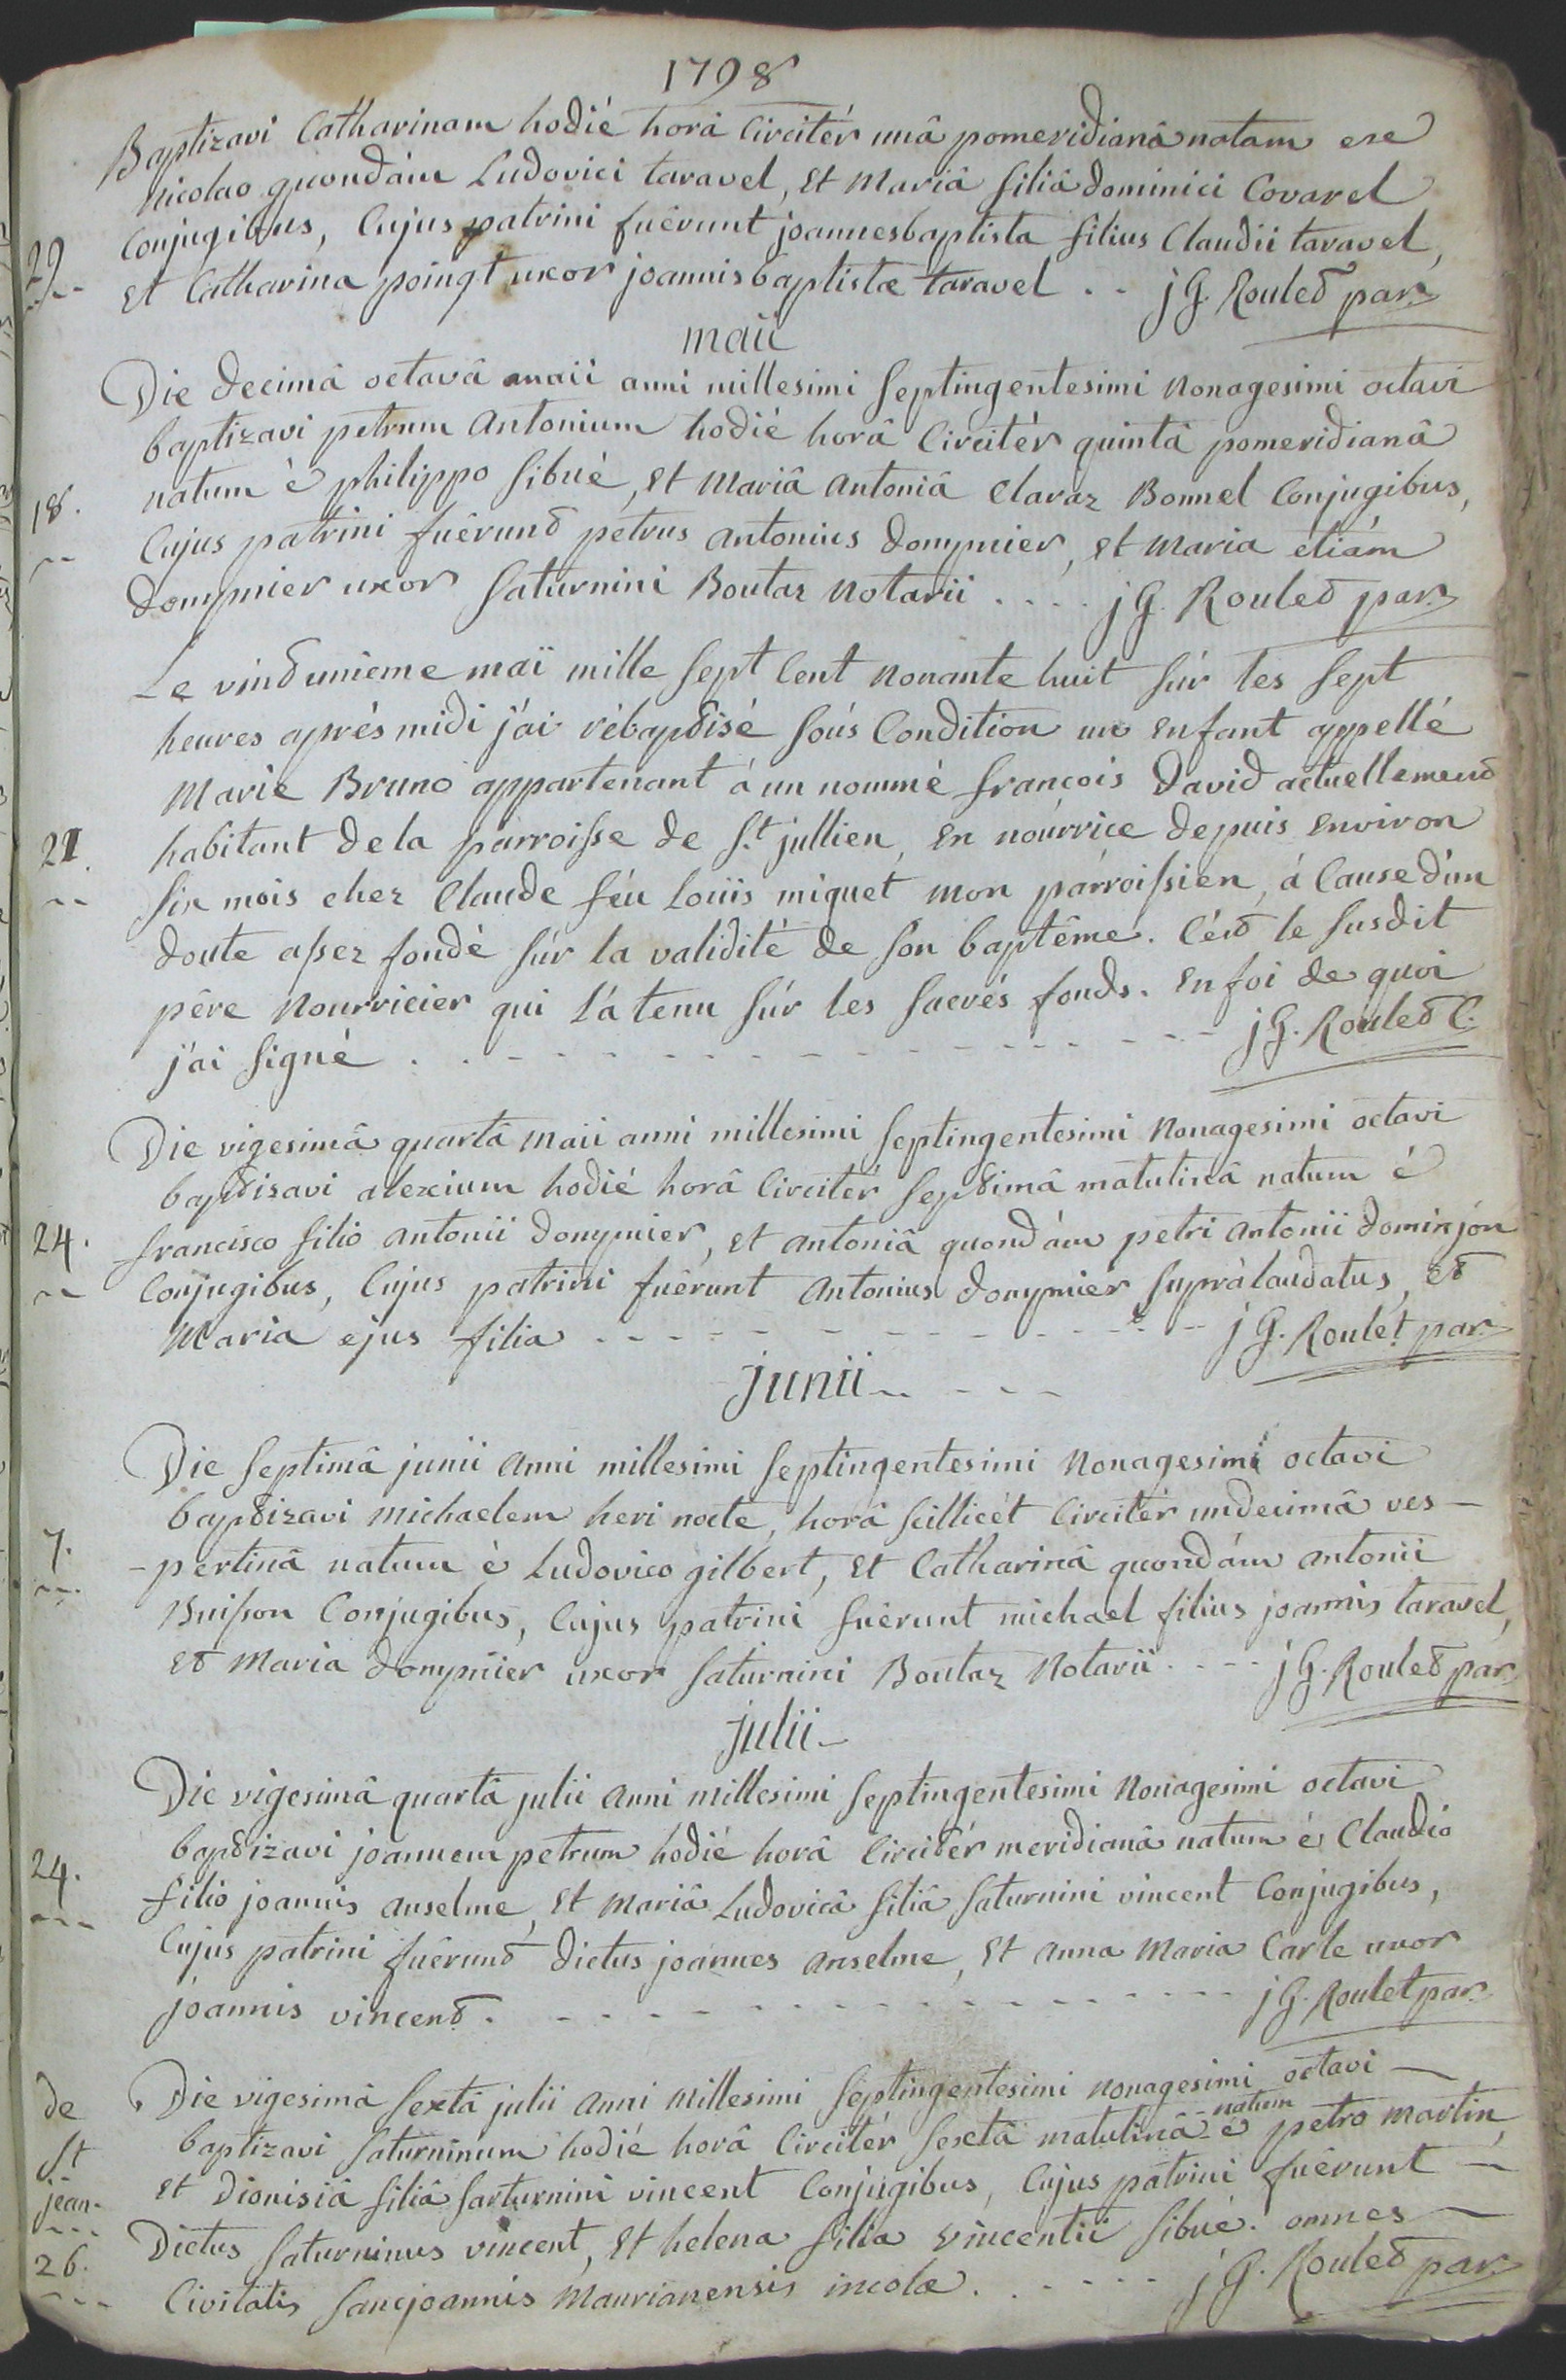 1798
Baptizavi Catharinam hodié horâ Circitér unâ pomeridianâ natam exe
Nicolao quondám Ludovici taravel, et Mariâ filiâ dominici Covarel
29 Conjugibus, Cujus patrini fuêrunt joannesbaptista filius Claudii taravel,
et Catharina poingt uxor joannisbaptistæ taravel . . jG. Roulet par.
maii
Die decimâ octavâ maii anni millesimi septingentesimi nonagesimi octavi
baptizavi petrum Antonium hodié horâ Circitér quintâ pomeridianâ
natum è philippo sibué, et Mariâ Antoniâ Claraz Bonnel Conjugibus,
18. Cujus patrini fuêrunt petrus antonius dompnier, et Maria etiám
dompnier uxor Saturnini Boutaz Notarii . . . . jG. Roulet par.
Le vintunieme maï mille sept Cent Nonante huit súr les sept
heures aprés midi j'ai rébaptisé soús Condition un enfant appellé
Marie Bruno appartenant á un nommé françois David actuellement
21. habitant de la parroisse de St. jullien, en nourrice depuis environ
six mois chez Claude féu Loüis miquet mon párroissien, á Cause d'un
doute assez fondé súr la validité de son baptême. C'ést le susdit
pére Nourricier qui l'á tenu súr les sacrés fonds. en foi de quoi
j'ai signé . . - - - - - jG. Roulet C.
Die vigesimâ quartâ maii anni millesimi septingentesimi Nonagesimi octavi
baptizavi alexium hodié horâ Circitér septimâ matutinâ natum é
24. francisco filio antonii dompnier, et antoniâ quondám petri antonii dominjon
Conjugibus, Cujus patrini fuêrunt Antonius dompnier suprálaudatus, et
Maria ejus filia - - - - - jG. Roulet par.
junii - - - -
Die septimâ junii Anni millesimi septingentesimi Nonagesimi octavi
baptizavi michaelem heri nocte, horâ scillicét Circitér undecimâ ves-
7. -pertinâ natum é Ludovico gilbert, et Catharinâ quondám antonii
Buisson Conjugibus, Cujus patrini fuêrunt michael filius joannis taravel,
et Maria dompnier uxor saturnini Boutaz Notarii . - - - jG. Roulet par.
julii -
Die vigesimâ quartâ julii Anni millesimi septingentesimi Nonagesimi octavi
baptizavi joannem petrum hodié horâ Circitér meridianâ natum é Claudio
24. filio joannis anselme, et Mariâ Ludovicâ filiâ saturnini vincent Conjugibus,
Cujus patrini fuêrunt dictus joannes anselme, et Anna Maria Carle uxor
joannis vincent. - - - - - jG. Roulet par.
de Die vigesimâ sextâ julii Anni Millesimi septingentesimi nonagesimi octavi -
St baptizavi saturninum hodié horâ Circitér sextâ matutinâ natum é petro martin,
jean. et Dionisiâ filiâ sarturnini vincent Conjugibus, Cujus patrini fuêrunt -
Dictus saturninus vincent, et helena filia vincentii sibué. omnes -
26. Civitatis sancjoannis Maurianensis incolæ . . - - - - jG. Roulet par.